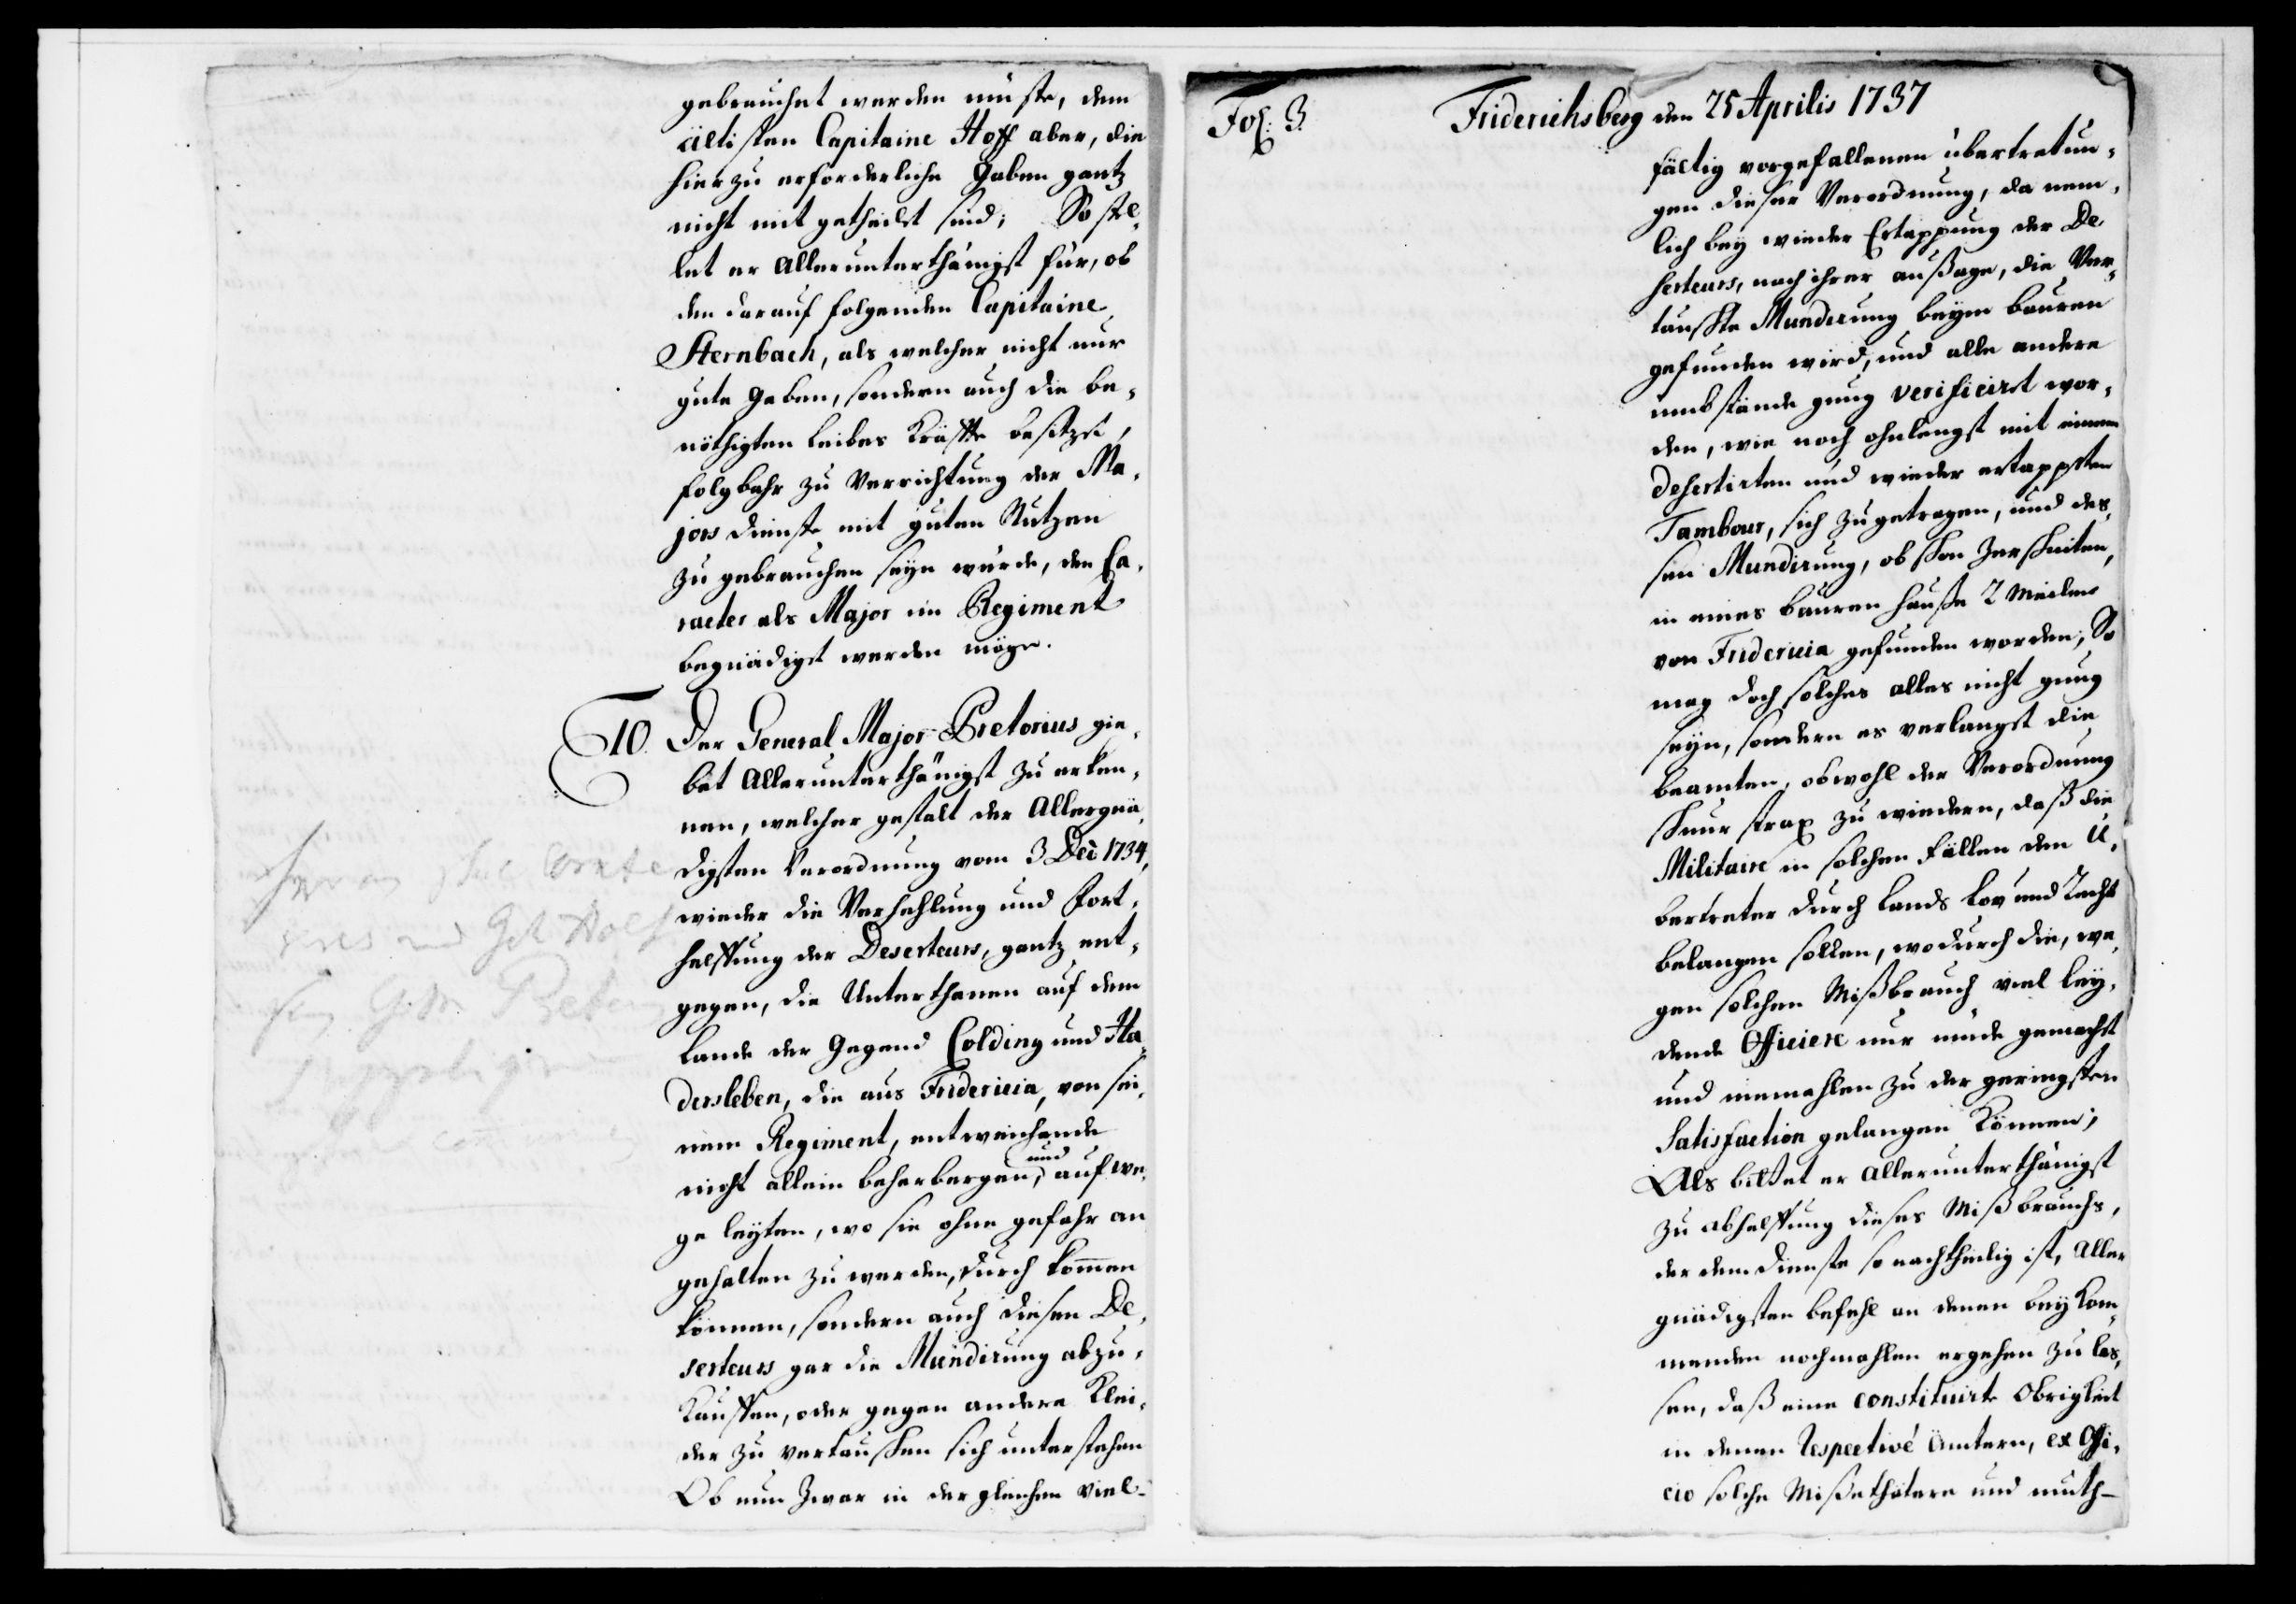 gebrauchet werden müste, dem
ältisten Capitaine Hoff aber, die
hierzu erforderliche Gaben gantz
nicht mit getheilet sind; So stel,
let er Allerunterthänigst für, ob
den darauf folgenden Capitaine
Sternbach, als welcher nicht nur
gute Gaben, sondern auch die be,
nöthigten Leibes Kräffte besitzet,
folgbahr zu Verrichtung der Ma,
jors dienste mit guten Nutzen
zu gebrauchen seyn würde, den Ca,
racter als Major im Regiment
begnädiget werden möge.
10. Der General Major Pretorius gie,
bet Allerunterthänigst zu erken,
nen, welcher gestalt der Allergnä,
digsten Verordnung vom 3 Dec 1734,
wieder die Verhehlung und Fort,
helffung der Deserteurs, gantz ent,
gegen, die Unterthanen auf dem
Lande der Gegend Colding und Ha,
dersleben, die aus Fridericia, von sei,
nem Regiment, entweichende
nicht allein beherbergen, und auf we,
ge leyten, wo sie ohne gefahr an
gehalten zu werden, durch kommen
können, sondern auch diesen De,
serteurs gar die Mundirung abzu,
kauffen, oder gegen andere Klei,
der zu vertauschen sich unterstehen
Ob nun zwar in der gleichen viel-
Fol: 3.
Friderichsberg den 25 Aprilis 1737
fältig vorgefallenen übertretun,
gen dieser Verordnung, da nem,
lich bey wieder Ertappung der De
serteurs, nach ihrer außage, die Ver,
tauschte Mundirung beym bauren
gefunden wird, und alle andere
umbstände gnug verificirt wor,
den, wie noch ohnlengst mit einem
desertirten und wieder ertappten
Tambour, sich zugetragen, und des,
sen Mundirung, obschon zerschniten,
in eines bauren hauße 2 Meilen
von Fridericia gefunden worden; So
mag doch solches alles nicht gnug
seyn, sondern es verlanget die
beamten, obwohl der Verordnung
schnur strax zu wiedern, daß die
Militaire in solchen Fällen den Ü,
bertreter durch Lands Lov und Recht
belangen sollen, wodurch die, we,
gen solchen Mißbrauch viel ley,
dende Officiere nur müde gemacht
und niemahlen zu der geringsten
Satisfaction gelangen können;
Als bittet er Allerunterthänigst
zu abhelffung dieses Mißbrauchs,
der dem Dienste so nachtheilig ist, Aller
gnädigsten befehl an denen bey kom,
menden nochmahlen ergehen zu las,
sen, daß eine constituirte Obrigkeit
in denen Respective Ämtern, ex Offi,
cio solche Mißethätere und muth-